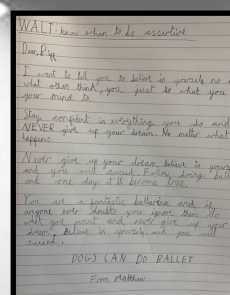 WALT: know when to be assertive
Dear, Biff
I want to tell you to believe in yourself no
what other think, you just be what you
your mind to.
Stay confident in everything you do and
NEVER give up your dream. No matter what
happens.
Never give up your dream, believe in
and you will succeed. Follow doing ballet
and one day it'll become true.
You are a fantastic ballerina and if
anyone ever doubts you ignore them do
what you want and never give up your
dream, Believe in yourself and you will
succeed.
DOGS CAN DO BALLET
From Matthew